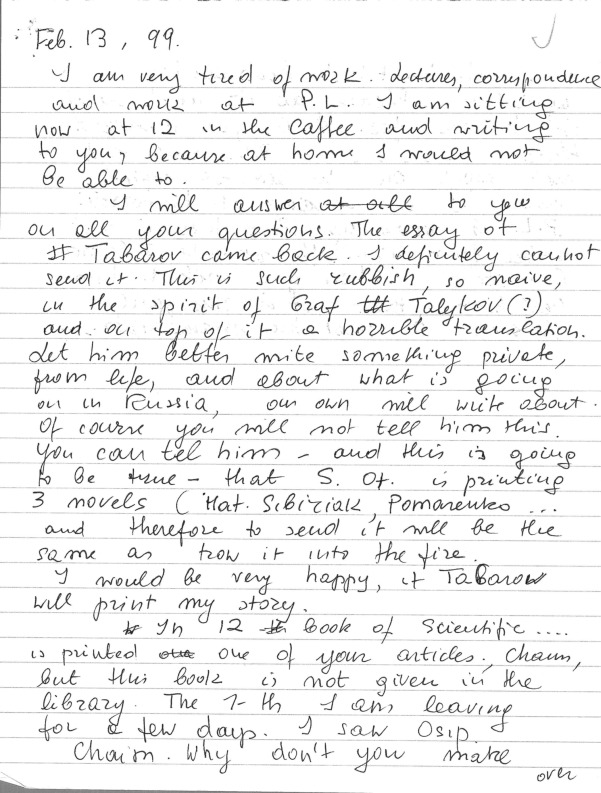 Feb. 13, 99.
I am very tired of work. Lectures, correspondence
and work at P.L. I am sitting
now at 12 in the Caffee and writing
to you, because at home I would not
be able to.
I will answer at all to you
on all your questions. The essay of
# Tabarov came back. I definitely cannot
send it. This is such rubbish, so naive,
in the spirit of Graf Talykov (?)
and on top of it a horrible translation.
Let him better write something private,
from life, and about what is going
on in Russia, our own will write about.
Of course you will not tell him this.
You can tel him – and this is going
to be true – that S. Ot. is printing
3 novels (Mat. Sibiriak, Pomarenko ...
and therefore to send it will be the
same as trow it into the fire.
I would be very happy, if Tabarow
will print my story.
In 12 book of Scientific ....
is printed one of your articles, Chaim,
but this book is not given in the
library. The 7-th I am leaving
for a few days. I saw Osip.
Chaim. Why don't you make
over